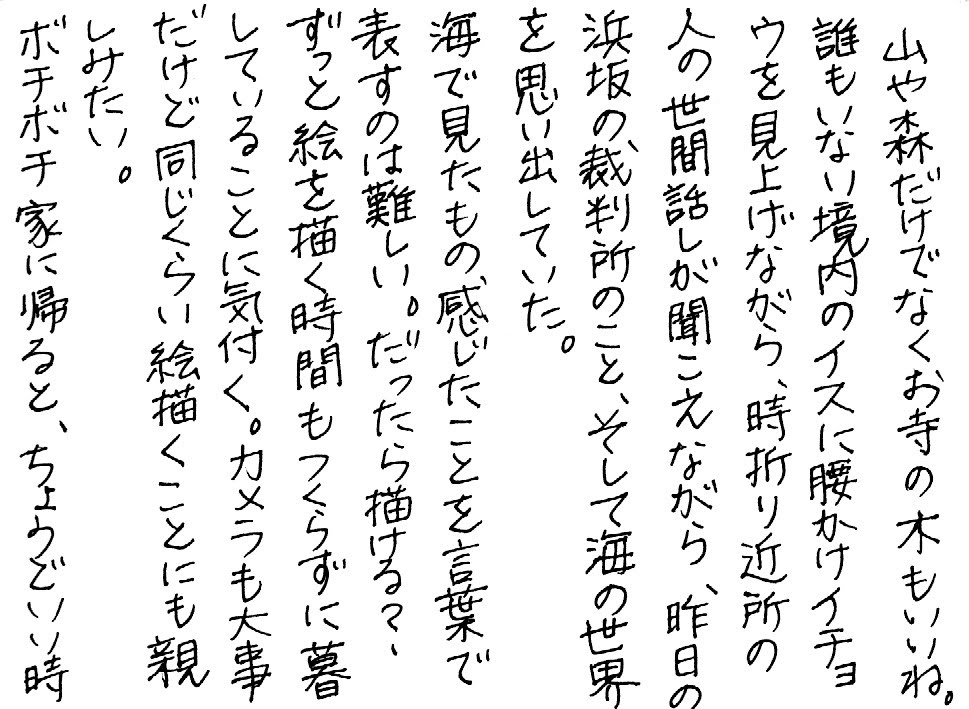 山や森だけでなくお寺の木もいいね。
誰もいない境内のイスに腰かけイチョ
ウを見上げながら、時折り近所の
人の世間話しが聞こえながら、昨日の
浜坂の、裁判所のこと、そして海の世界
を思い出していた。
海で見たもの、感じたことを言葉で
表すのは難しい。だったら描ける?、
ずっと絵を描く時間もつくらずに暮
していることに気付く。カメラも大事
だけど同じくらい絵描くことにも親
しみたい。
ボチボチ家に帰ると、ちょうどいい時